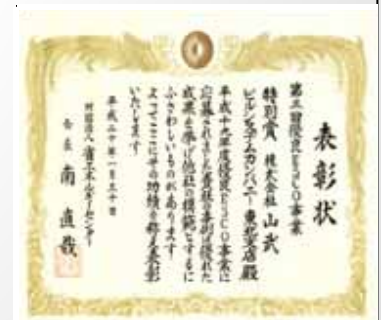 表彰状
第三回優良ESCO事業
特別賞 株式会社 山武
ビルシステムカンパニー 東北支店殿
平成十九年度優良ESCO事業に
応募されました貴社の事例は優れた
成果を挙げ他社の模範とするに
ふさわしいものがあります
よってここにその功績を称え表彰
いたします
平成二十年一月三十日
財団法人 省エネルギーセンター
会長 南 直哉